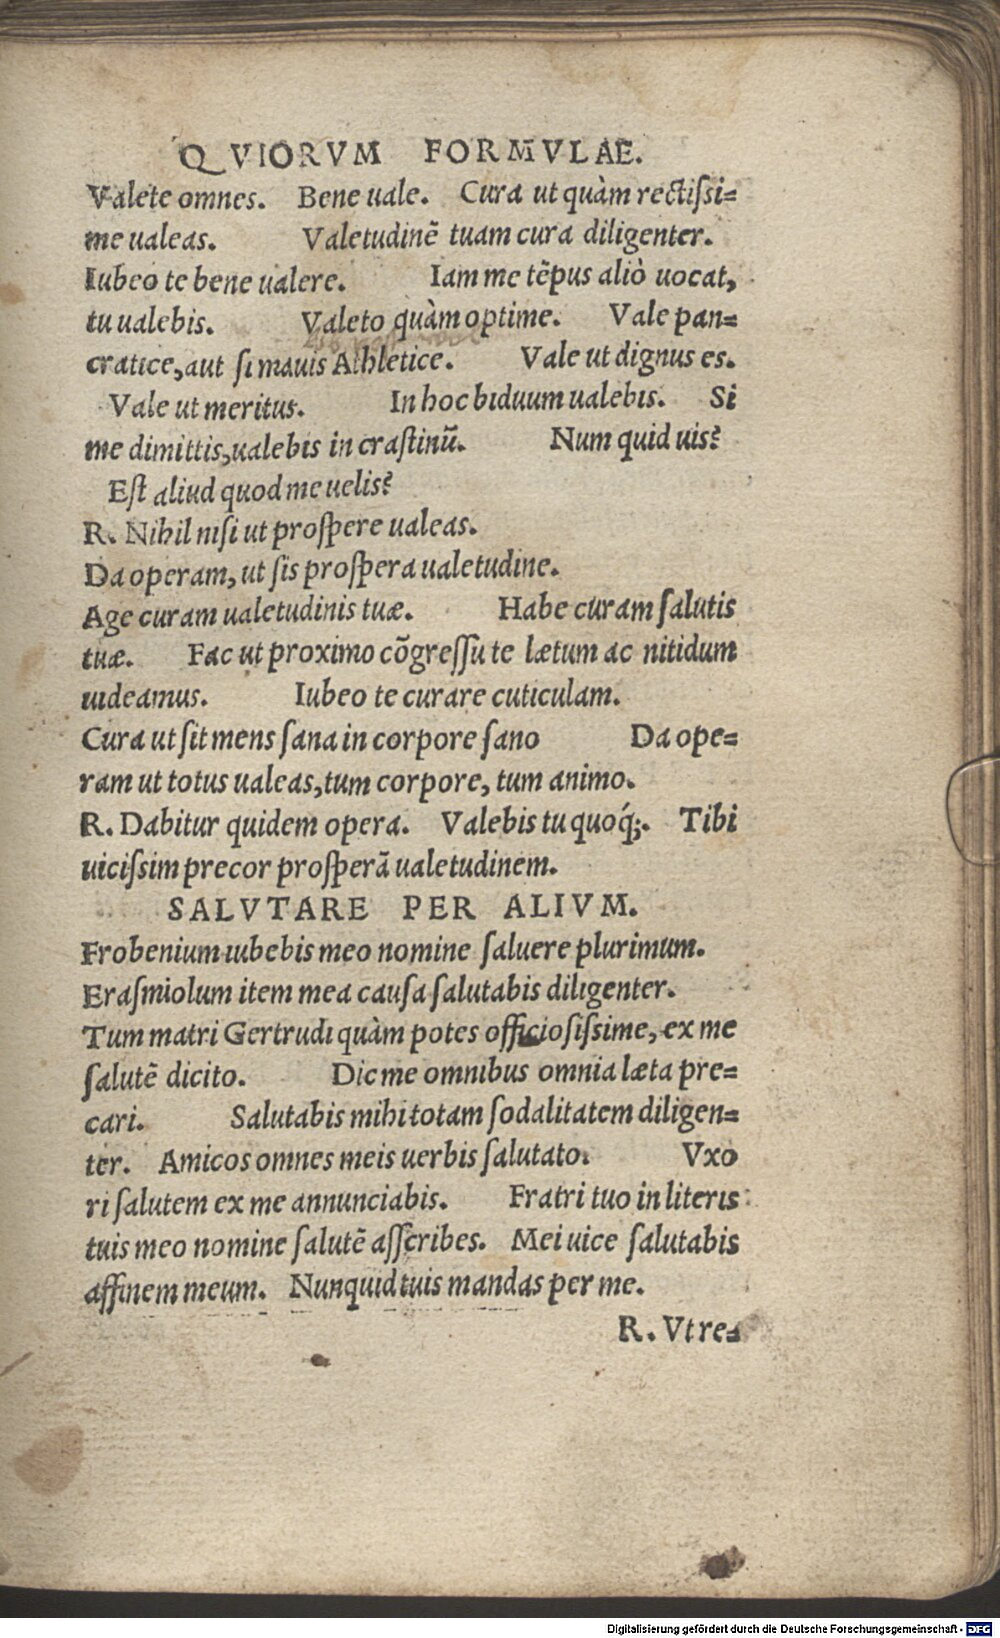 QVIORVM FORMVLAE.
Valete omnes. Bene uale. Cura ut quàm rectiſsi=
me ualeas. Valetudinẽ tuam cura diligenter.
Iubeo te bene ualere. Iam me tẽpus aliò uocat,
tu ualebis. Valeto quàm optime. Vale pan=
cratice, aut ſi mauis Athletice. Vale ut dignus es.
Vale ut meritus. In hoc biduum ualebis. Si
me dimittis, ualebis in craſtinũ. Num quid uis?
Eſt aliud quod me uelis?
R. Nihil niſi ut proſpere ualeas.
Da operam, ut ſis proſpera ualetudine.
Age curam ualetudinis tuæ. Habe curam ſalutis
tuæ. Fac ut proximo cõgreſſu te lætum ac nitidum
uideamus. Iubeo te curare cuticulam.
Cura ut ſit mens ſana in corpore ſano Da ope=
ram ut totus ualeas, tum corpore, tum animo.
R. Dabitur quidem opera. Valebis tu quoq́;. Tibi
uiciſsim precor proſperã ualetudinem.
SALVTARE PER ALIVM.
Frobenium iubebis meo nomine ſaluere plurimum.
Eraſmiolum item mea cauſa ſalutabis diligenter.
Tum matri Gertrudi quàm potes officioſiſsime, ex me
ſalutẽ dicito. Dic me omnibus omnia læta pre=
cari. Salutabis mihi totam ſodalitatem diligen=
ter. Amicos omnes meis uerbis ſalutato. Vxo
ri ſalutem ex me annunciabis. Fratri tuo in literis
tuis meo nomine ſalutẽ aſſcribes. Mei uice ſalutabis
affinem meum. Nunquid tuis mandas per me.
R. Vtre=
Digitalisierung gefördert durch die Deutsche Forschungsgemeinschaft - DFG